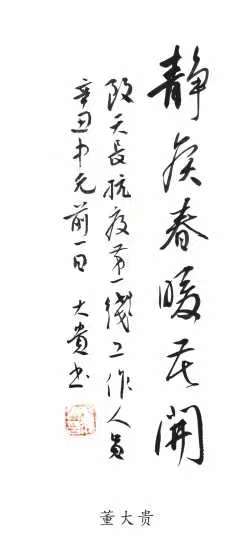 静候春暖花開
致天長抗疫第一綫工作人員
辛丑中元前一日 大貴书
董大贵